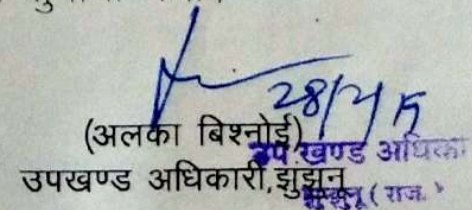 28/2/15
(अलका बिश्नोई)
उप खण्ड अधिकारी
उपखण्ड अधिकारी, झुझुनू
(राज.)